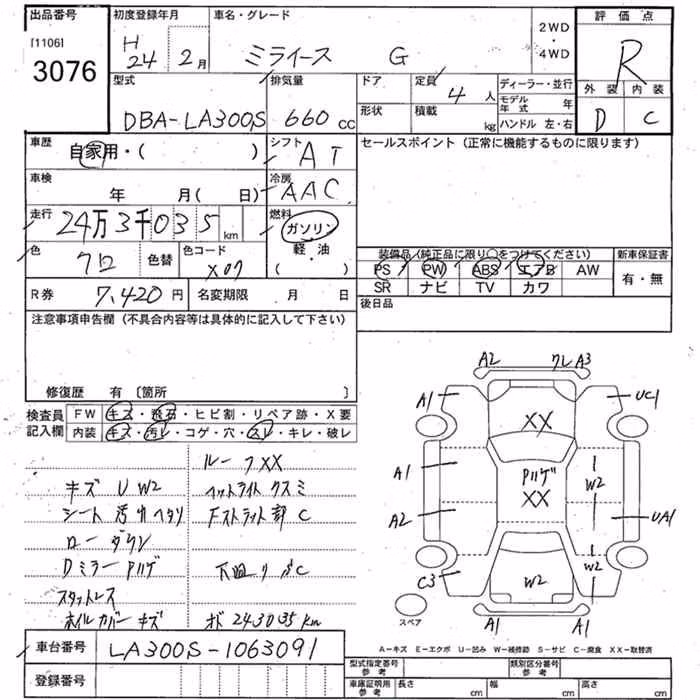 出品番号 初度登録年月 車名・グレード 2WD 評価点
[1106] H ・
3076 24 2月 ミライース G 4WD R
型式 排気量 ドア 定員 ディーラー・並行 外装 内装
4人 モデル年式 年
DBA-LA300S 660cc 形状 積載 kg ハンドル 左・右 D C
車歴 自家用・( ) シフト AT セールスポイント(正常に機能するものに限ります)
車検 年 月( 日) 冷房 AAC
走行 24万3千035km 燃料 ガソリン
色 クロ 色替 色コード X07 軽・油 ( ) 装備品(純正品に限り○をつけてください) 新車保証書
PS PW ABS エアB AW 有・無
R券 7,420円 名変期限 月 日 SR ナビ TV カワ
後日品
注意事項申告欄(不具合内容等は具体的に記入して下さい)
修復歴 有 〔箇所 〕
検査員 FW キズ・飛石・ヒビ割・リペア跡・X要
記入欄 内装 キズ・汚レ・コゲ・穴・スレ・キレ・破レ
ルーフXX
キズ U W2 ヘットライト クスミ
シート 汚れ ヘタリ Fストラット部 C
ローダウン
Dミラー Pハゲ 下廻り サビC
スタットレス
ホイルカバー キズ 243035km
A2 クレA3
A1 UC1
XX
A1 Pハゲ W2
XX
A2 UA1
C3 W2 W2
A1 A1
スペア
A-キズ E-エクボ U-凹み W-補修跡 S-サビ C-腐食 XX-取替済
車台番号 LA300S-1063091
型式指定番号 参考 類別区分番号 参考
登録番号 車庫証明用 参考 長さ cm 幅 cm 高さ cm